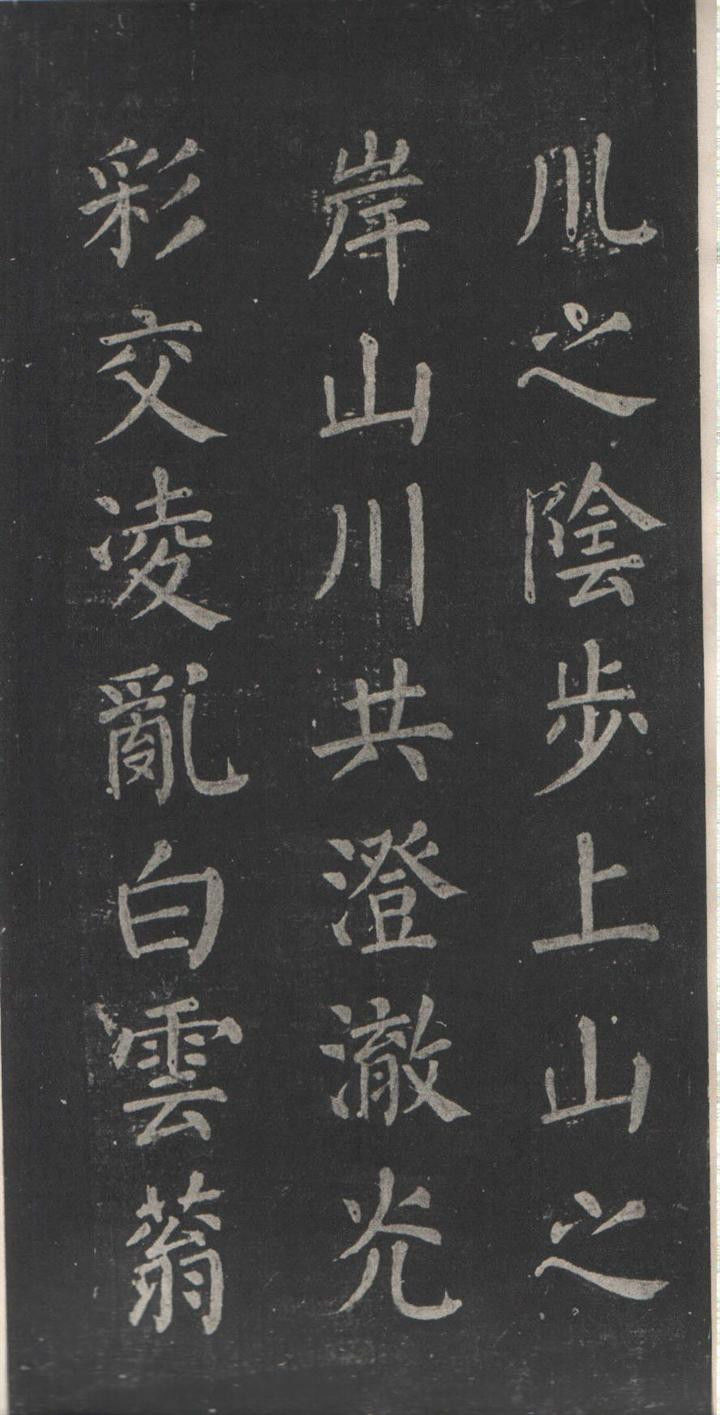 川之陰步上山之
岸山川共澄澈光
彩交凌亂白雲蓊